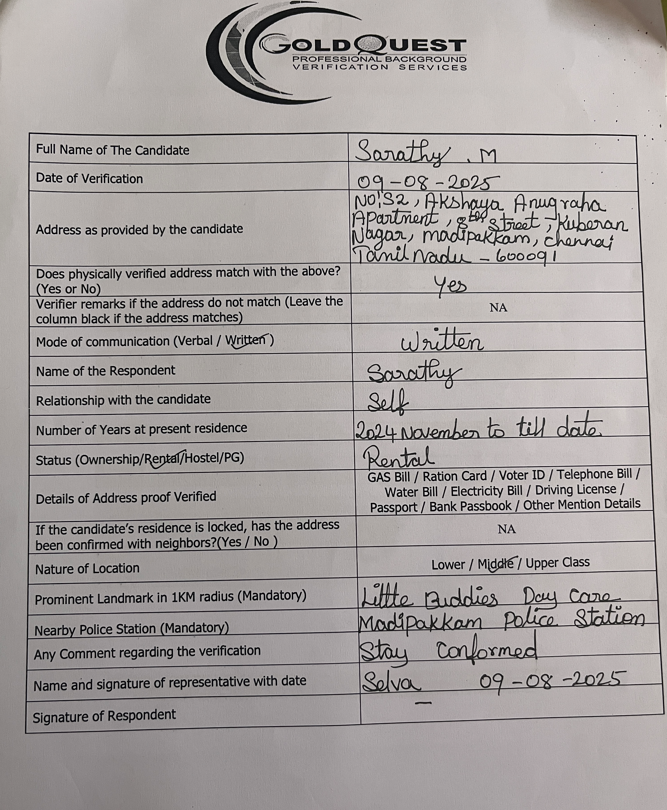 GOLDQUEST
PROFESSIONAL BACKGROUND
VERIFICATION SERVICES
Full Name of The Candidate
Sarathy . M
Date of Verification
09-08-2025
Address as provided by the candidate
NO:S2, Akshaya Anugraha
Apartment, 8th Street, Kuberan
Nagar, madipakkam, chennai
Tamil Nadu - 600091
Does physically verified address match with the above?
(Yes or No)
Yes
Verifier remarks if the address do not match (Leave the
column black if the address matches)
NA
Mode of communication (Verbal / Written )
Written
Name of the Respondent
Sarathy
Relationship with the candidate
Self
Number of Years at present residence
2024 November to till date.
Status (Ownership/Rental/Hostel/PG)
Rental
Details of Address proof Verified
GAS Bill / Ration Card / Voter ID / Telephone Bill /
Water Bill / Electricity Bill / Driving License /
Passport / Bank Passbook / Other Mention Details
If the candidate's residence is locked, has the address
been confirmed with neighbors?(Yes / No )
NA
Nature of Location
Lower / Middle / Upper Class
Prominent Landmark in 1KM radius (Mandatory)
Little Buddies Day Care
Nearby Police Station (Mandatory)
Madipakkam Police Station
Any Comment regarding the verification
Stay Conformed
Name and signature of representative with date
Selva 09-08-2025
Signature of Respondent
—